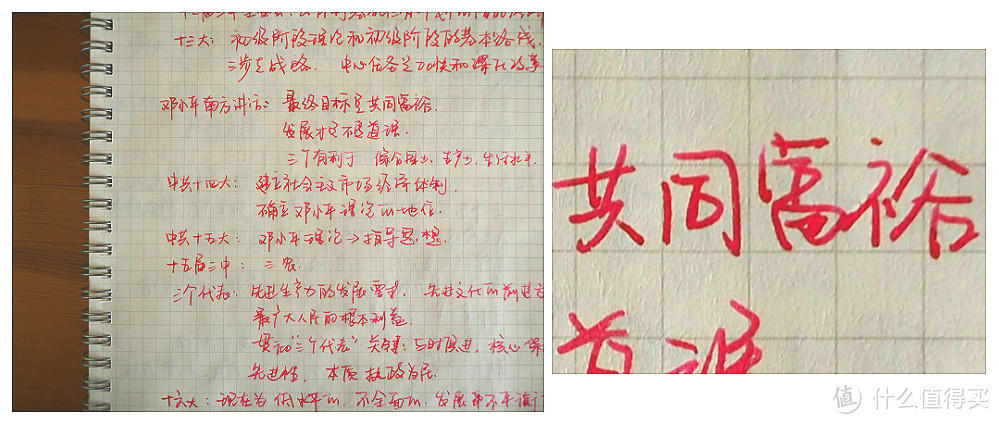 十三大: 初级阶段理论和初级阶段的基本路线.
三步走战略. 中心任务是加快和深化改革
邓小平南方讲话: 最终目标是共同富裕.
发展才是硬道理.
三个有利于 综合国力. 生产力. 生活水平.
中共十四大: 建立社会主义市场经济体制.
确立邓小平理论m地位.
中共十五大: 邓小平理论→指导思想.
十五届三中: 三农.
三个代表: 先进生产力的发展需求. 先进文化m前进方
最广大人民的根本利益.
贯彻"三个代表" 关键: 与时俱进. 核心 保
先进性. 本质 执政为民.
十六大: 现在为低水平m. 不全面m. 发展不平衡
共同富裕
道理
值 什么值得买